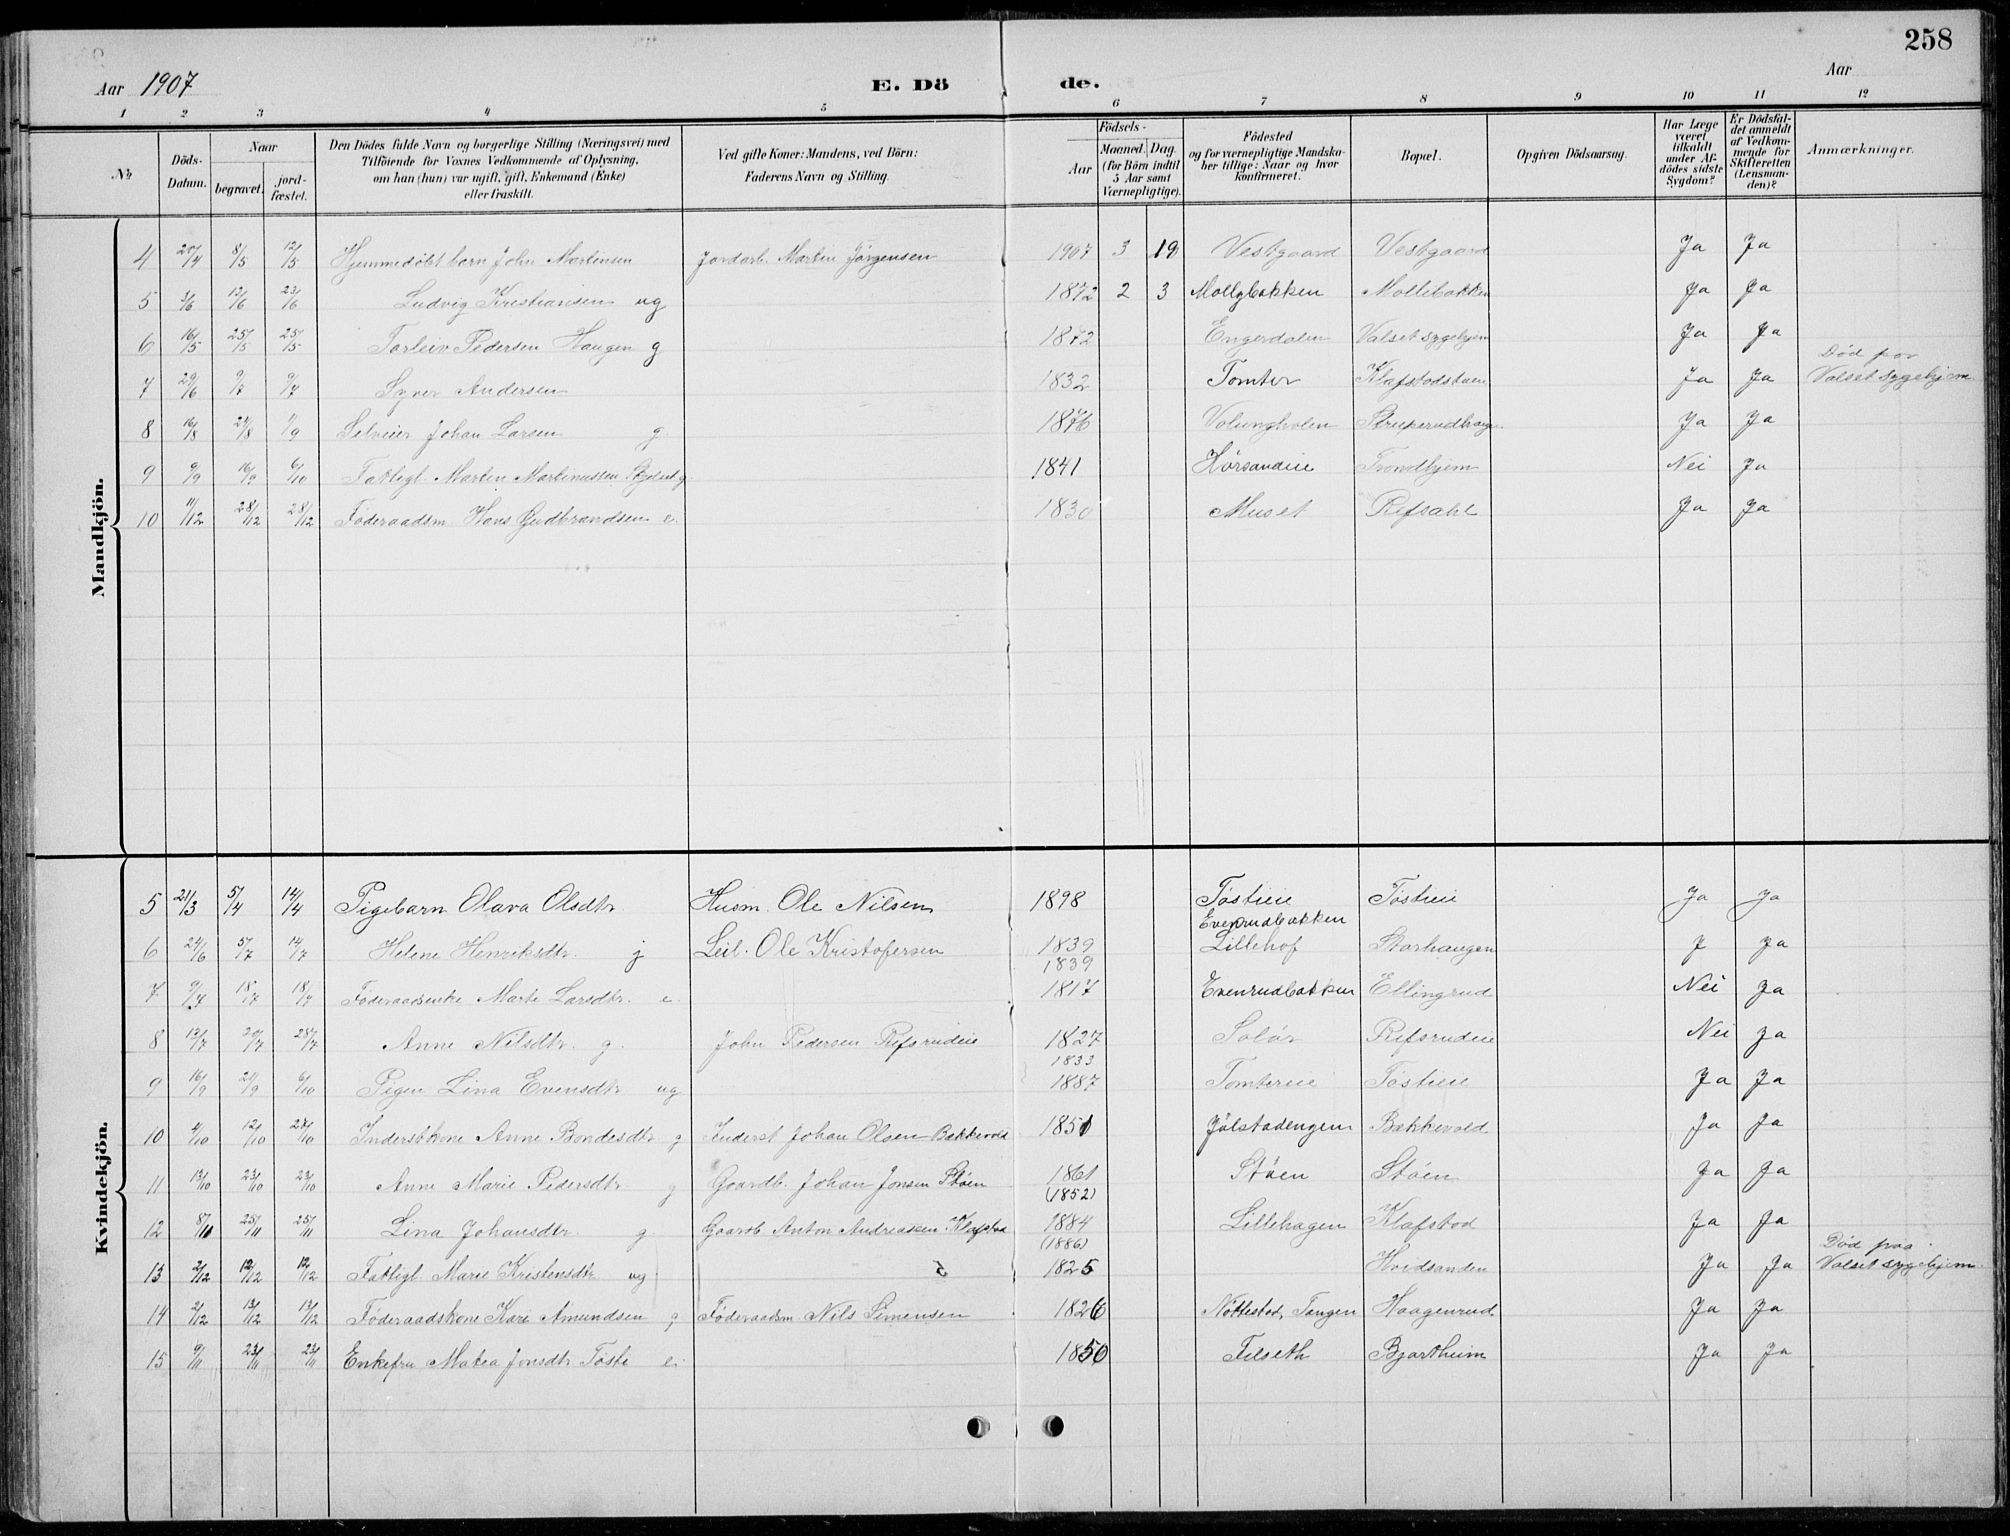 258
Aar 1907 E. Dö de. Aar
1 2 3 4 5 6 7 8 9 10 11 12
No. Döds-Datum. Naar begravet. jord-fæstet. Den Dödes fulde Navn og borgerlige Stilling (Næringsvei) med Tilföiende for Voxnes Vedkommende af Oplysning, om han (hun) var ugift, gift, Enkemand (Enke) eller fraskilt. Ved gifte Koner: Mandens, ved Börn: Faderens Navn og Stilling. Födsels- Aar Maaned. Dag. (for Börn indtil 5 Aar samt Værnepligtige). Födested og for værnepligtige Mandskaber tillige: Naar og hvor konfirmeret. Bopæl. Opgiven Dödsaarsag. Har Læge været tilkaldt under Afdödes sidste Sygdom? Er Dödsfaldet anmeldt af Vedkommende for Skifteretten (Lensmanden)? Anmærkninger.
Mandkjön.
4 20/4 8/5 12/5 Hjemmedøbt barn John Martinsen Jordarb. Martin Jørgensen 1907 3 19 Vestgaard Vestgaard Ja Ja
5 3/6 12/6 23/6 Ludvig Kristiansen ug 1872 2 3 Mollybakken Mollebakken Ja Ja
6 16/5 25/5 25/5 Torleiv Pedersen Haugen g 1872 Engerdalen Valset sygehjem Ja Ja
7 29/6 9/7 9/7 Syver Andersen 1832 Tomter Klafstadstuen Ja Ja Død paa Valset sygehjem
8 16/8 24/8 1/9 Selveier Johan Larsen g. 1876 Volungholen Ja Ja
9 9/9 16/9 6/10 Fattigl. Martin Martinussen g. 1841 Hørsandeie Trondhjem Nei Ja
10 11/12 28/12 28/12 Føderaadsm Hans Gudbrandsen e. 1830 Muset Refsahl Ja Ja
Kvindekjön.
5 21/3 5/4 14/4 Pigebarn Olava Olsdtr Husm. Ole Nilsen 1898 Tøstieie Tøstieie Ja Ja
6 24/6 5/7 14/7 Helene Henriksdtr. g Leil. Ole Kristofersen 1839 Evenrudbakken Lillehof Storhaugen J Ja
1839
7 9/7 18/7 18/7 Føderaadsenke Marte Larsdtr. e. 1817 Evenrudbakken Ellingrud Nei Ja
8 13/7 20/7 28/7 Anne Nilsdtr. g. John Pedersen Refsrudeie 1827 Solør Refsrudeie Nei Ja
1833
9 16/9 21/9 6/10 Pigen Lina Evensdtr ug 1887 Tomtereie Tøstieie Ja Ja
10 4/10 12/10 27/10 Inderstkone Anne Bondesdtr g Inderst Johan Olsen Bakkevold 1851 Jølstadengen Bakkevold Ja Ja
11 13/10 23/10 23/10 Anne Marie Pedersdtr. g Gaardb. Johan Jonsen Støen 1861 Støen Støen Ja Ja
(1852)
12 8/11 25/11 25/11 Lina Johansdtr. g. Gaardb Anton Andreassen Klafstad 1884 Lillehagen Klafstad Ja Ja
(1886)
13 2/12 12/12 12/12 Fattigl. Marie Kristensdtr ug 5 1825 Hvidsanden Ja Ja Død paa Valset sygehjem
14 2/12 13/12 13/12 Føderaadskone Kari Amundsen g Føderaadsm. Nils Simensen 1826 Nøttestad, Tangen Haagenrud Ja Ja
15 9/11 23/11 23/11 Enkefru Matea Jonsdtr Tøste e. 1850 Filseth Bjartheim Ja Ja